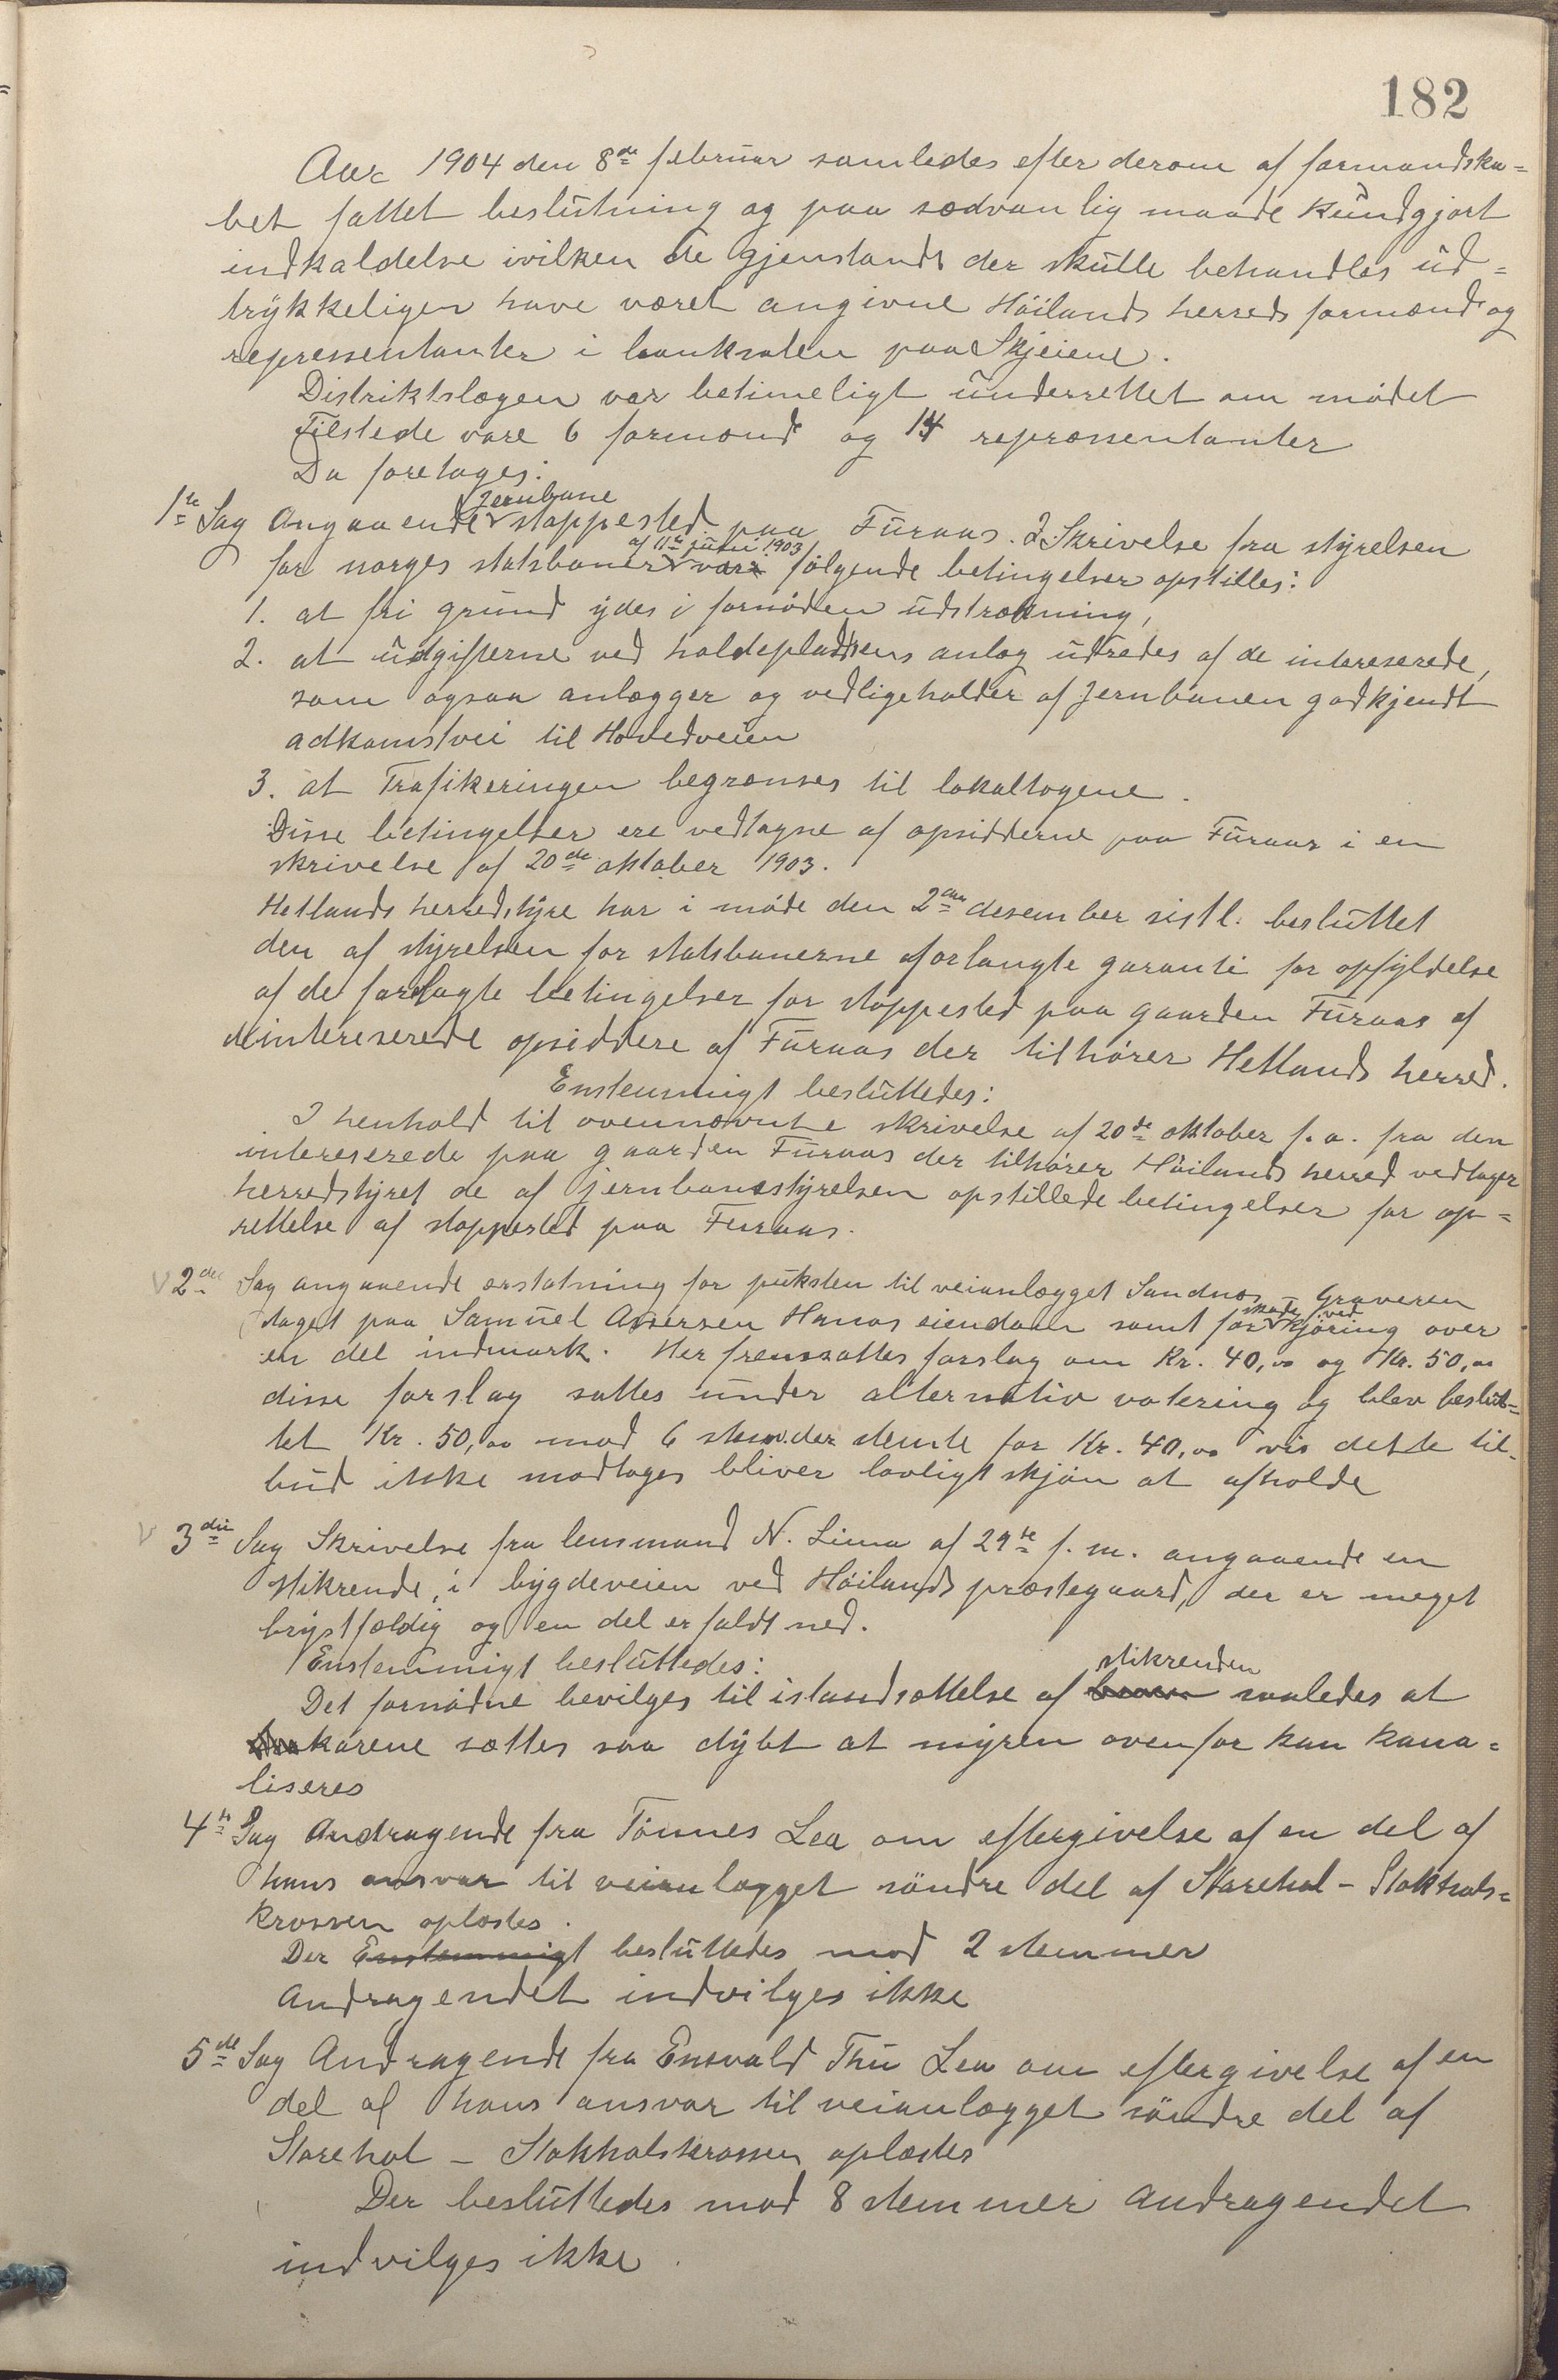 182
Aar 1904 den 8de februar samledes efter derom af formandska=
bet fattet beslutning og paa sædvanlig maade kundgjort
indkaldelse ivilken de gjenstande der skulle behandles ud=
trykkeligen have været angivne Höilands herreds formænd og
repressentanter i banksalen paa Skjeiene.
Distriktslægen var betimeligt underrettet om mödet
Tilstede vare 6 formænd og 14 repræssentanter
Da foretages:
1ste Sag Angaaende Jernbane stoppested paa Furaas. I Skrivelse fra styrelsen
for norges statsbaner af 11te juni 1903 følgende betingelser opstilles:
1. at fri grund ydes i fornöden udstrækning,
2. at udgifterne ved holdepladsens anlæg udredes af de intereserede,
som ogsaa anlægger og vedligeholder af Jernbanen godkjendt
adkomstvei til Hovedveien
3. at Trafikeringen begrænses til lokaltogene.
Disse betingelser ere vedtagne af opsidderne paa Furaas i en
skrivelse af 20de oktober 1903.
Hetlands herredstyre har i möde den 2den desember sistl. besluttet
den af styrelsen for statsbanerne aforlangte garanti for opfyldelse
af de forelagte betingelser for stoppested paa gaarden Furaas af
deintereserede opsiddere af Furaas der tilhörer Hetlands herred.
Enstemmigt besluttedes:
I henhold til ovennævnte skrivelse af 20de oktober f.a. fra den
intereserede paa gaarden Furaas der tilhörer Höilands herred vedtager
herredstyret de af jernbanestyrelsen opstillede betingelser for op=
rettelse af stoppested paa Furaas.
2den Sag angaaende erstatning for puksten til veianlægget Sandnæs - Graveren
taget paa Samuel Assersen Hanas eiendom samt for skade ved kjöring over
en del indmark. Her fremsattes forslag om Kr. 40,00 og Kr. 50,00
disse forslag sattes under alternativ votering og blev beslut=
tet Kr. 50,00 mod 6 stem. der stemte for Kr. 40,00 vis dette til-
bud ikke modtages bliver lovligt skjön at afholde
3die Sag Skrivelse fra lensmand N. Lima af 29de f.m. angaaende en
stikrende, i bygdeveien ved Höilands præstegaard, der er meget
brystfældig og en del er faldt ned.
Enstemmigt besluttedes:
Det fornödne bevilges til istandsættelse af stikrenden saaledes at
karene sættes saa dybt at myren ovenfor kan kana=
liseres
4de Sag Andragende fra Tönnes Lea om eftergivelse af en del af
hans ansvar til veianlægget söndre del af Starehol - Stokkals=
krossen oplæstes.
Der Enstemmigt besluttedes mod 2 stemmer
Andragendet indvilges ikke
5de Sag Andragende fra Enevald Thu Lea om eftergivelse af en
del af hans ansvar til veianlægget söndre del af
Starehol - Stokkalskrossen oplæstes
Der besluttedes mod 8 stemmer andragendet
indvilges ikke.